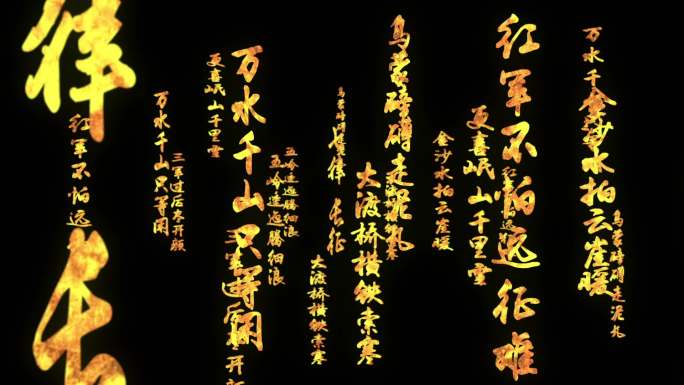 乌蒙磅礴走泥丸
万水千
金沙水拍云崖暖
红军不怕远征难
红军不怕远
更喜岷山千里雪
金沙水拍云崖暖
乌蒙磅礴走泥丸
大渡桥横铁索寒
乌蒙磅礴
律 长征
大渡桥横铁索寒
五岭逶迤腾细浪
五岭逶迤腾细浪
万水千山只等闲
更喜岷山千里雪
三军过后尽开颜
万水千山只等闲
红军不怕远
律 长